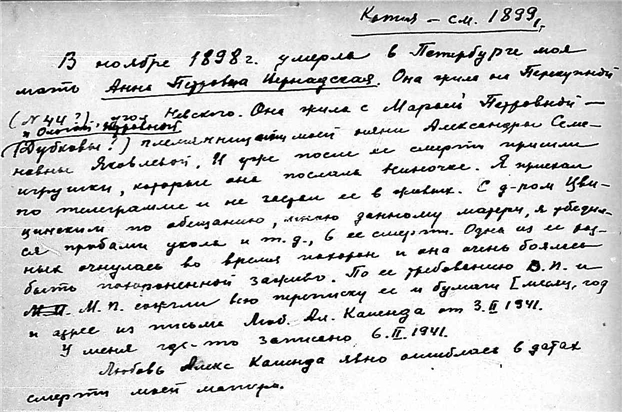 Копия – см. 1899 г.
В ноябре 1898 г. умерла в Петербурге моя
мать Анна Петровна Вернадская. Она жила на Перекупной
(N 44?), угол Невского. Она жила с Марьей Петровной –
и Ольгой Петровной
(Дубковы?) племянницами моей Александры Семе-
новны Яковлевой. И уже после ее смерти пришли
игрушки, которые она послала Ниночке. Я приехал
по телеграмме и не застал ее в живых. С д-ром Цви-
цинским по обещанию, мною данному матери, я убедил-
ся пробами укола и т.д., в ее смерти. Одна из ее род-
ных очнулась во время похорон и она очень боялась
быть похороненной заживо. По ее требованию В.П. и
М.П. сожгли всю переписку ее и бумаги [месяц, год
и адрес из письма Люб. Ал. Капенда от 3.II 1941.
У меня где-то записано 6.II.1941.
Любовь Алекс Капенда явно ошиблась в датах
смерти моей матери.